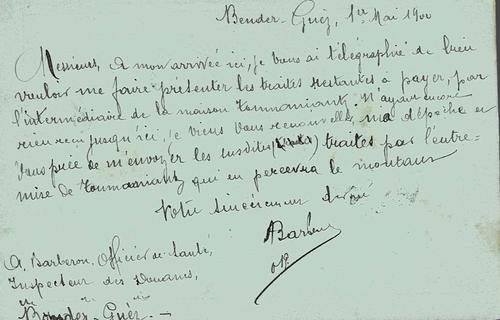 Bender-Guéz, 1er Mai 1900
Messieurs, A mon arrivée ici, je vous ai télégraphié de bien
vouloir me faire présenter les traites restantes à payer, par
l'intermédiaire de la maison Toumaniantz. N'ayant encore
rien reçu jusqu'ici, je viens vous renouveller ma dépêche et
vous prie de m'envoyer les susdites traites par l'entre-
mise de Toumaniantz qui en percevra le montant
Votre sincèrement dévoué
Barberon
A. Barberon, Officier de Santé,
Inspecteur des Douanes,
Bender-Guéz.-